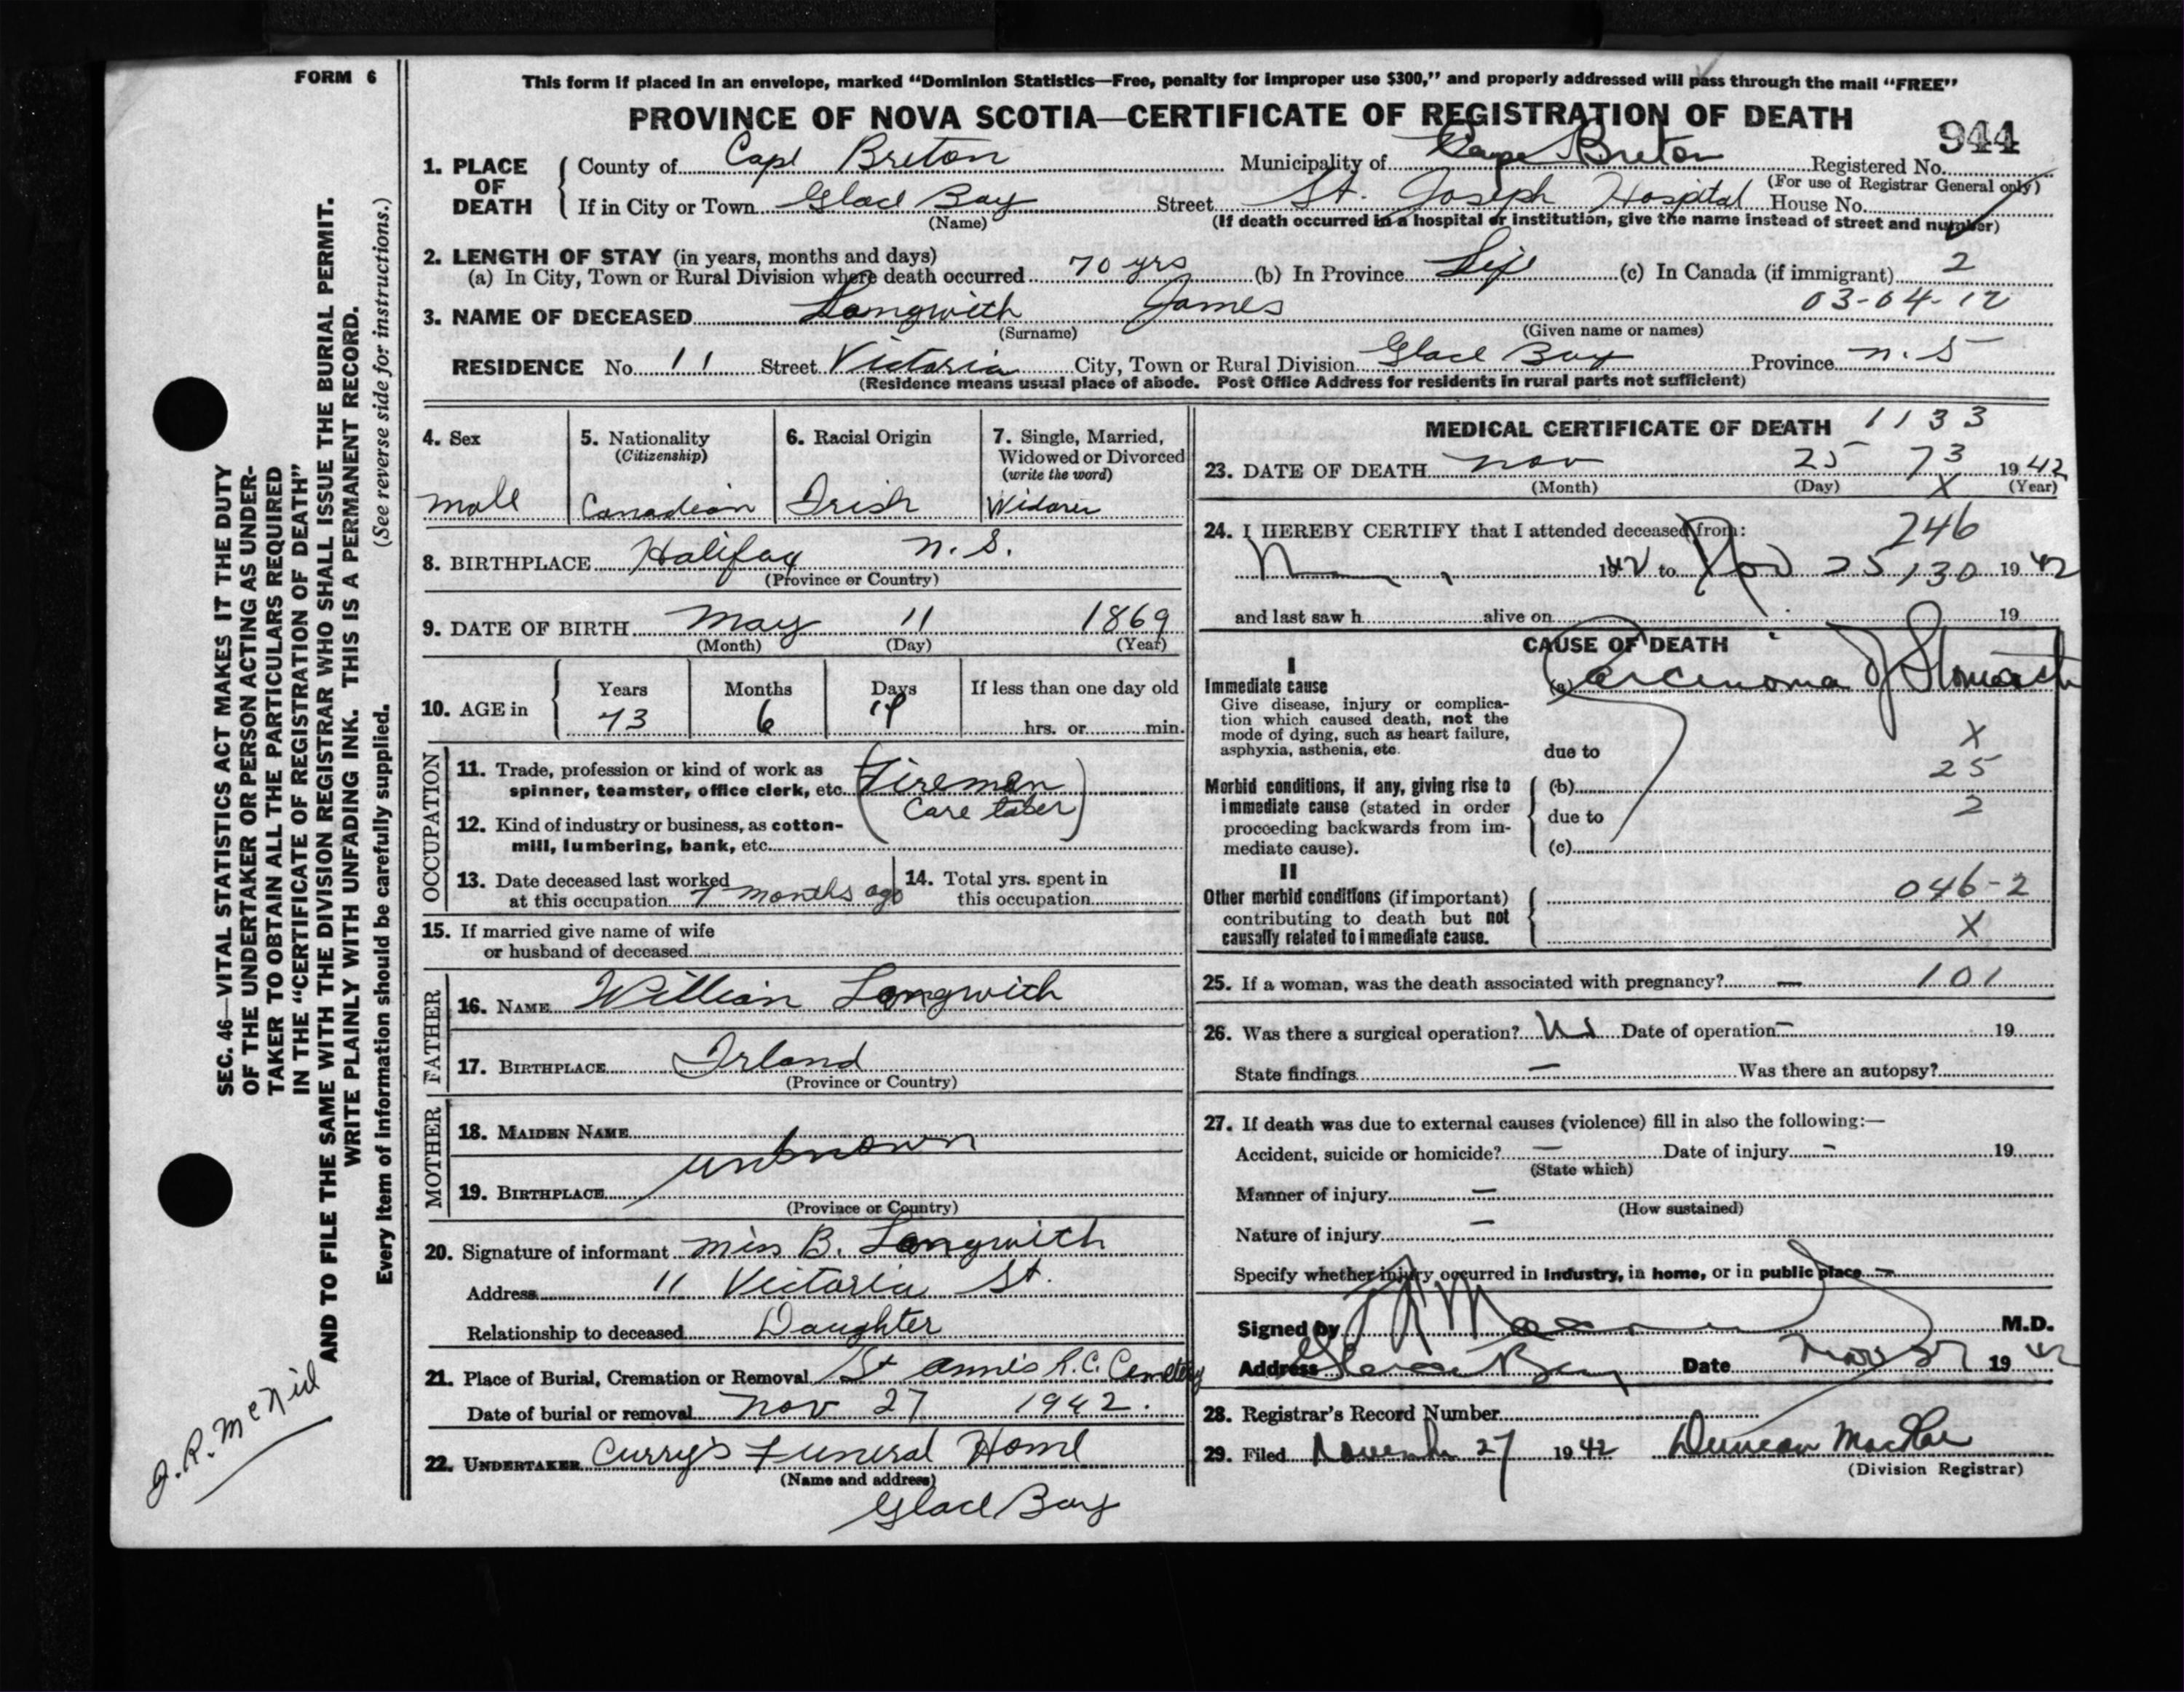 FORM 6
This form if placed in an envelope, marked “Dominion Statistics—Free, penalty for improper use $300,” and properly addressed will pass through the mail “FREE”
PROVINCE OF NOVA SCOTIA—CERTIFICATE OF REGISTRATION OF DEATH
944
1. PLACE OF DEATH
County of Cape Breton Municipality of Cape Breton Registered No.
(For use of Registrar General only)
If in City or Town Glace Bay Street St. Joseph Hospital House No.
(Name) (If death occurred in a hospital or institution, give the name instead of street and number)
2. LENGTH OF STAY (in years, months and days)
(a) In City, Town or Rural Division where death occurred 70 yrs (b) In Province Life (c) In Canada (if immigrant) 2
03-04-12
3. NAME OF DECEASED Longwith James
(Surname) (Given name or names)
RESIDENCE No. 11 Street Victoria City, Town or Rural Division Glace Bay Province N.S
(Residence means usual place of abode. Post Office Address for residents in rural parts not sufficient)
4. Sex
male
5. Nationality
(Citizenship)
Canadian
6. Racial Origin
Irish
7. Single, Married,
Widowed or Divorced
(write the word)
Widower
8. BIRTHPLACE Halifax N.S.
(Province or Country)
9. DATE OF BIRTH May 11 1869
(Month) (Day) (Year)
10. AGE in
Years Months Days If less than one day old
73 6 14 hrs. or min.
OCCUPATION
11. Trade, profession or kind of work as
spinner, teamster, office clerk, etc. (Fireman
Care taker)
12. Kind of industry or business, as cotton-
mill, lumbering, bank, etc.
13. Date deceased last worked
at this occupation 7 months ago
14. Total yrs. spent in
this occupation
15. If married give name of wife
or husband of deceased
FATHER
16. NAME William Longwith
17. BIRTHPLACE Irland
(Province or Country)
MOTHER
18. MAIDEN NAME
unknown
19. BIRTHPLACE
(Province or Country)
20. Signature of informant Miss B. Longwith
Address 11 Victoria St.
Relationship to deceased Daughter
21. Place of Burial, Cremation or Removal St Anne's R.C. Cemetery
Date of burial or removal Nov 27 1942.
22. UNDERTAKER Curry's Funeral Home
(Name and address)
Glace Bay
MEDICAL CERTIFICATE OF DEATH 1133
23. DATE OF DEATH Nov 25 73 1942
(Month) (Day) X (Year)
24. I HEREBY CERTIFY that I attended deceased from: 246
1942 to Nov 25, 130 1942
and last saw h alive on 19
CAUSE OF DEATH
I
Immediate cause
Give disease, injury or complica-
tion which caused death, not the
mode of dying, such as heart failure,
asphyxia, asthenia, etc.
(a) Carcinoma of Stomach
X
due to
25
Morbid conditions, if any, giving rise to
immediate cause (stated in order
proceeding backwards from im-
mediate cause).
(b)
2
due to
(c)
II
Other morbid conditions (if important)
contributing to death but not
causally related to immediate cause.
046-2
X
25. If a woman, was the death associated with pregnancy? — 101
26. Was there a surgical operation? Date of operation — 19
State findings — Was there an autopsy?
27. If death was due to external causes (violence) fill in also the following:—
Accident, suicide or homicide? — Date of injury - 19
(State which)
Manner of injury —
(How sustained)
Nature of injury —
Specify whether injury occurred in industry, in home, or in public place —
Signed by M.D.
Address Glace Bay Date Nov 1942
28. Registrar's Record Number
29. Filed November 27 1942 Duncan MacRae
(Division Registrar)
SEC. 46—VITAL STATISTICS ACT MAKES IT THE DUTY
OF THE UNDERTAKER OR PERSON ACTING AS UNDER-
TAKER TO OBTAIN ALL THE PARTICULARS REQUIRED
IN THE “CERTIFICATE OF REGISTRATION OF DEATH”
AND TO FILE THE SAME WITH THE DIVISION REGISTRAR WHO SHALL ISSUE THE BURIAL PERMIT.
WRITE PLAINLY WITH UNFADING INK. THIS IS A PERMANENT RECORD.
Every item of information should be carefully supplied. (See reverse side for instructions.)
J.R. McNeil